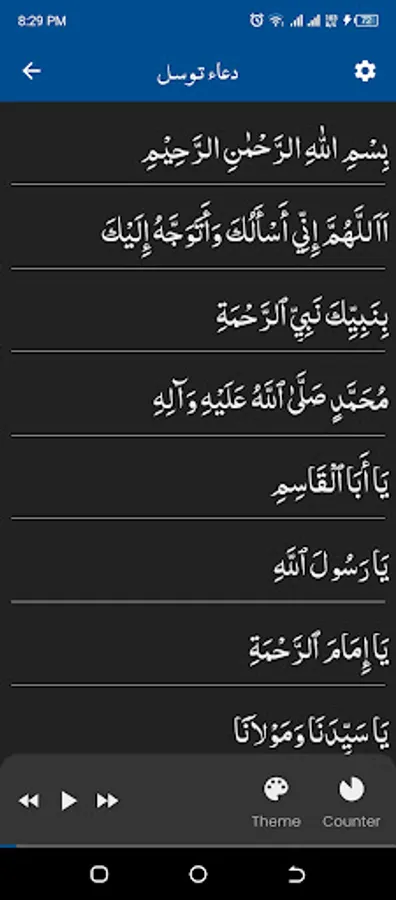 8:29 PM
دعاء توسل
بِسْمِ اللّٰهِ الرَّحْمٰنِ الرَّحِيْمِ
اَاَللَّهُمَّ إِنِّي أَسْأَلُكَ وَأَتَوَجَّهُ إِلَيْكَ
بِنَبِيِّكَ نَبِيِّ ٱلرَّحْمَةِ
مُحَمَّدٍ صَلَّىٰ ٱللَّهُ عَلَيْهِ وَآلِهِ
يَا أَبَا ٱلْقَاسِمِ
يَا رَسُولَ ٱللَّهِ
يَا إِمَامَ ٱلرَّحْمَةِ
يَا سَيِّدَنَا وَمَوْلَانَا
Theme Counter